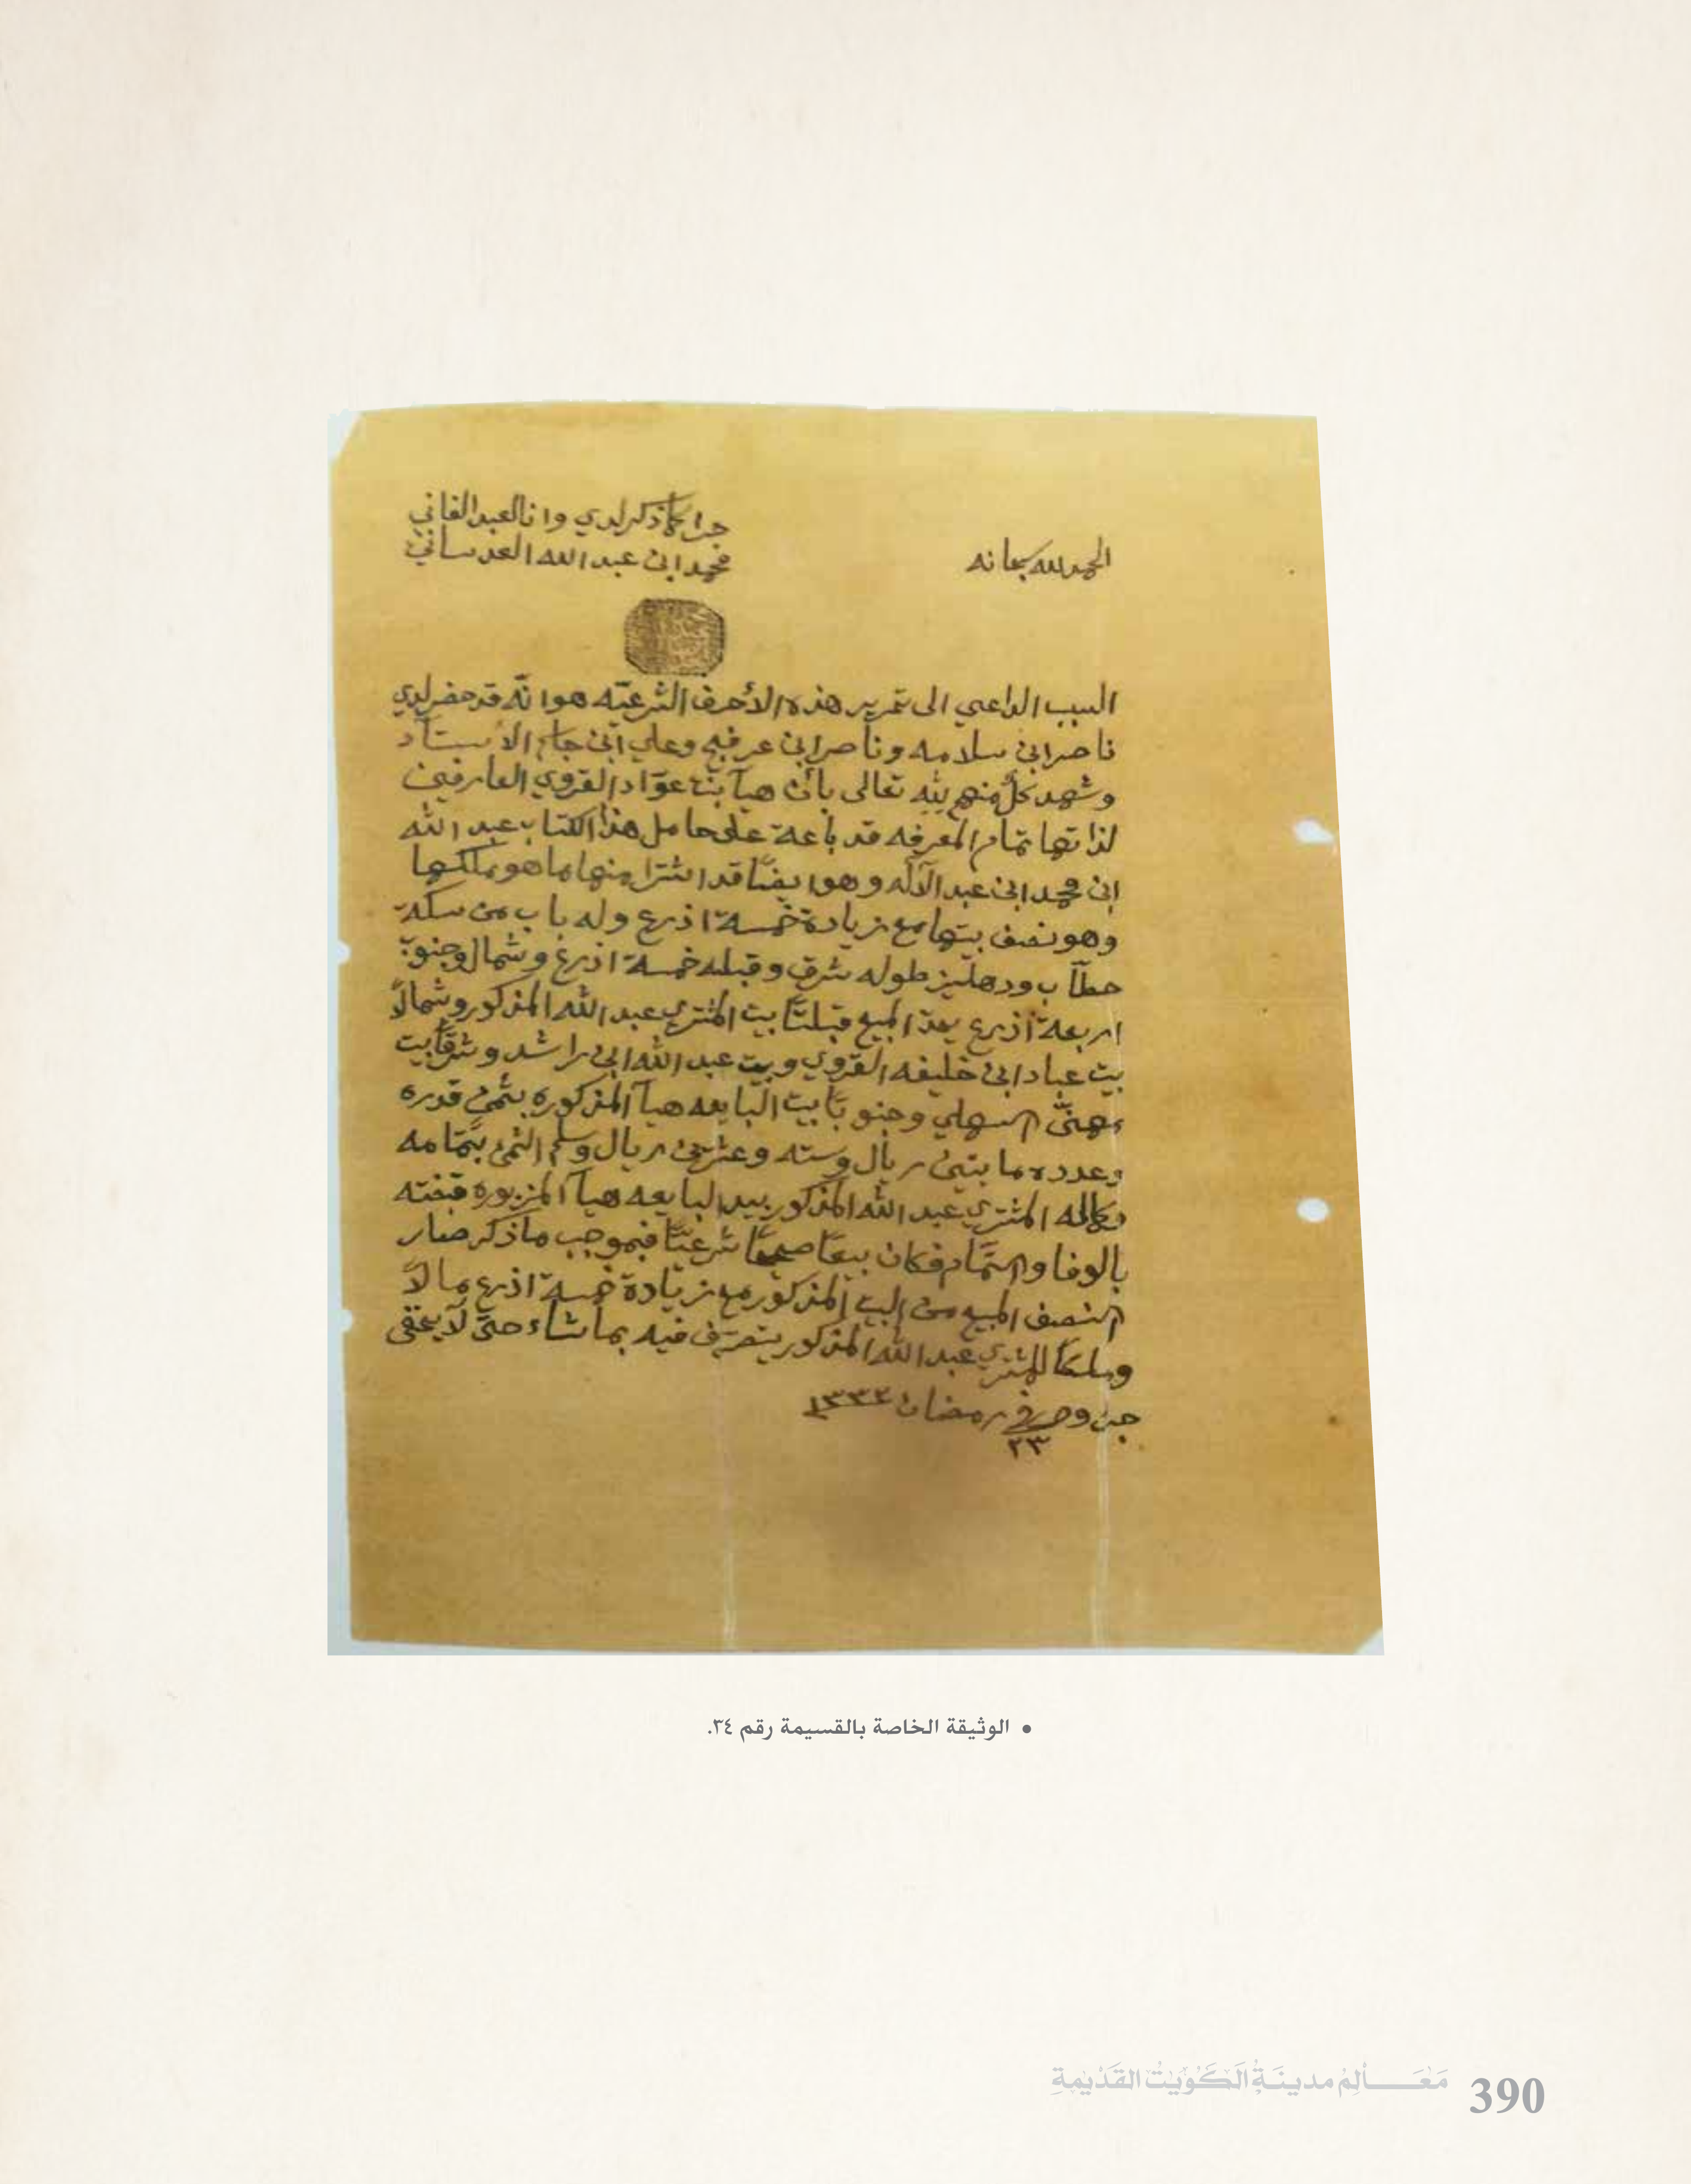 الحمد لله سبحانه
جرا كما ذكر لدي وانا العبد الفاني
محمد ابن عبد الله العدساني
السبب الداعي الى تحرير هذه الأحرف الشرعيّه هوا نّه قد حضر لدي
ناصر ابن سلامه وناصر ابن عرفج وعلي ابن جاسم الأستاد
وشهد كلٌ منهم لله تعالى بأن هيا بنت عوّاد القروي العارفين
لذاتها تمام المعرفه قد باعة على حامل هذا الكتاب عبد الله
ابن محمد ابن عبد الآله وهو ايضًا قد اشترا منها ما هو ملكها
وهو نصف بيتها مع زيادة خمسة اذرع وله باب من سكة
حطّاب ودهليز طوله شرق وقبله خمسة اذرع وشمال وجنوب
اربعة اذرع يحدّ المبيع قبلتًا بيت المشتري عبد الله المذكور وشمالاً
بيت عباد ابن خليفه القروي وبيت عبد الله ابن راشد وشرقًا بيت
مهنّى السهلي وجنوبًا بيت البايعه هيا المذكوره بثمن قدره
وعدده مايتين ريال وسته وعشرين ريال وسلم الثمن بتمامه
وكماله المشتري عبد الله المذكور بيد البايعه هيا المزبوره قبضته
بالوفا والتّمام فكان بيعًا صحيحًا شرعيًّا فبموجب ما ذكر صار
النصف المبيع من البيت المذكور مع زيادة خمسة اذرع مالاً
وملكًا للمشتري عبد الله المذكور يتصرّف فيه بما شاء حتى لا يخفى
جرى وحرر في رمضان ١٣٣٢
٢٣
• الوثيقة الخاصة بالقسيمة رقم ٣٤.
مَعَــالِمُ مدينَةِ الكُوَيْتْ القَدْيمَةِ 390